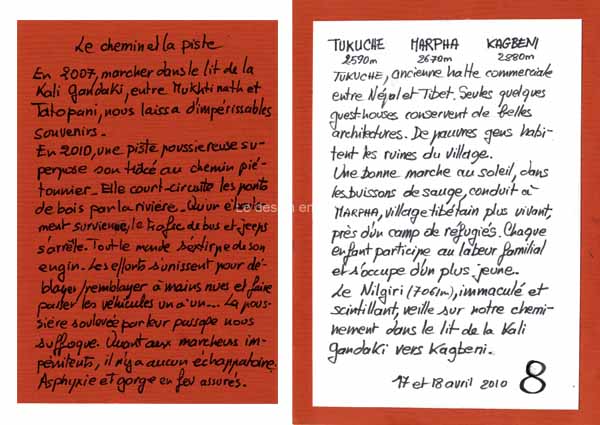 Le chemin et la piste
En 2007, marcher dans le lit de la
Kali Gandaki, entre Mukhtinath et
Tatopani, nous laissa d'impérissables
souvenirs.
En 2010, une piste poussiereuse su-
perpose son tracé au chemin pié-
tonnier. Elle court-circuite les ponts
de bois par la rivière. Qu'un éboule-
ment survienne, le trafic de bus et jeeps
s'arrête. Tout le monde s'extirpe de son
engin. Les efforts s'unissent pour dé-
blayer/remblayer à mains nues et faire
passer les véhicules un à un... La pous-
sière soulevée par leur passage nous
suffoque. Quant aux marcheurs im-
pénitents, il n'y a aucun échappatoire.
Asphyxie et gorge en feu assurés.
TUKUCHE MARPHA KAGBENI
2590m 2670m 2880m
TUKUCHE, ancienne halte commerciale
entre Népal et Tibet. Seules quelques
guesthouses conservent de belles
architectures. De pauvres gens habi-
tent les ruines du village.
Une bonne marche au soleil, dans
les buissons de sauge, conduit à
MARPHA, village tibétain plus vivant,
près d'un camp de réfugiés. Chaque
enfant participe au labeur familial
et s'occupe d'un plus jeune.
Le Nilgiri (7061m), immaculé et
scintillant, veille sur notre chemi-
nement dans le lit de la Kali
Gandaki vers Kagbeni.
17 et 18 avril 2010 8